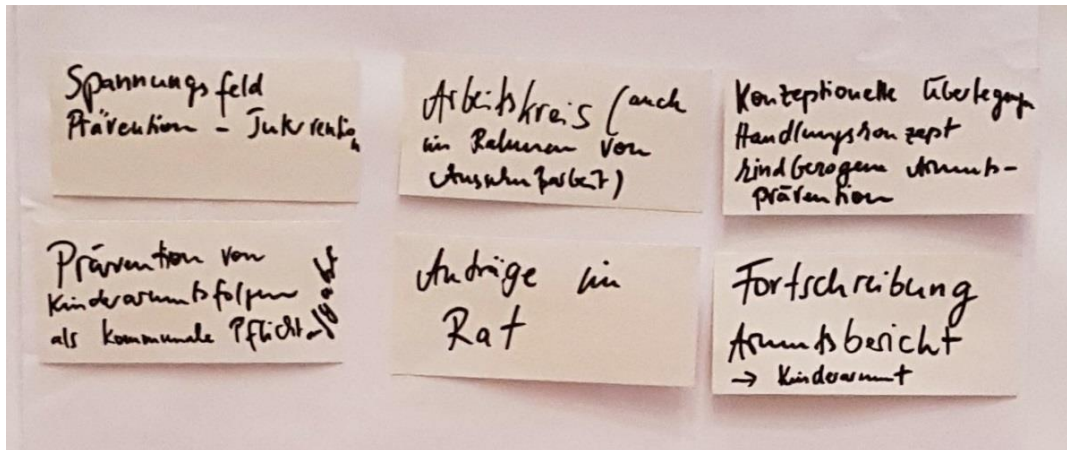 Spannungsfeld
Prävention - Intervention
Arbeitskreis (auch
im Rahmen von
Ausschußarbeit)
Konzeptionelle Überlegungen
Handlungskonzept
kindbezogene Armuts-
prävention
Prävention von
Kinderarmutsfolgen
als kommunale Pflichtaufgabe
Anträge im
Rat
Fortschreibung
Armutsbericht
→ Kinderarmut